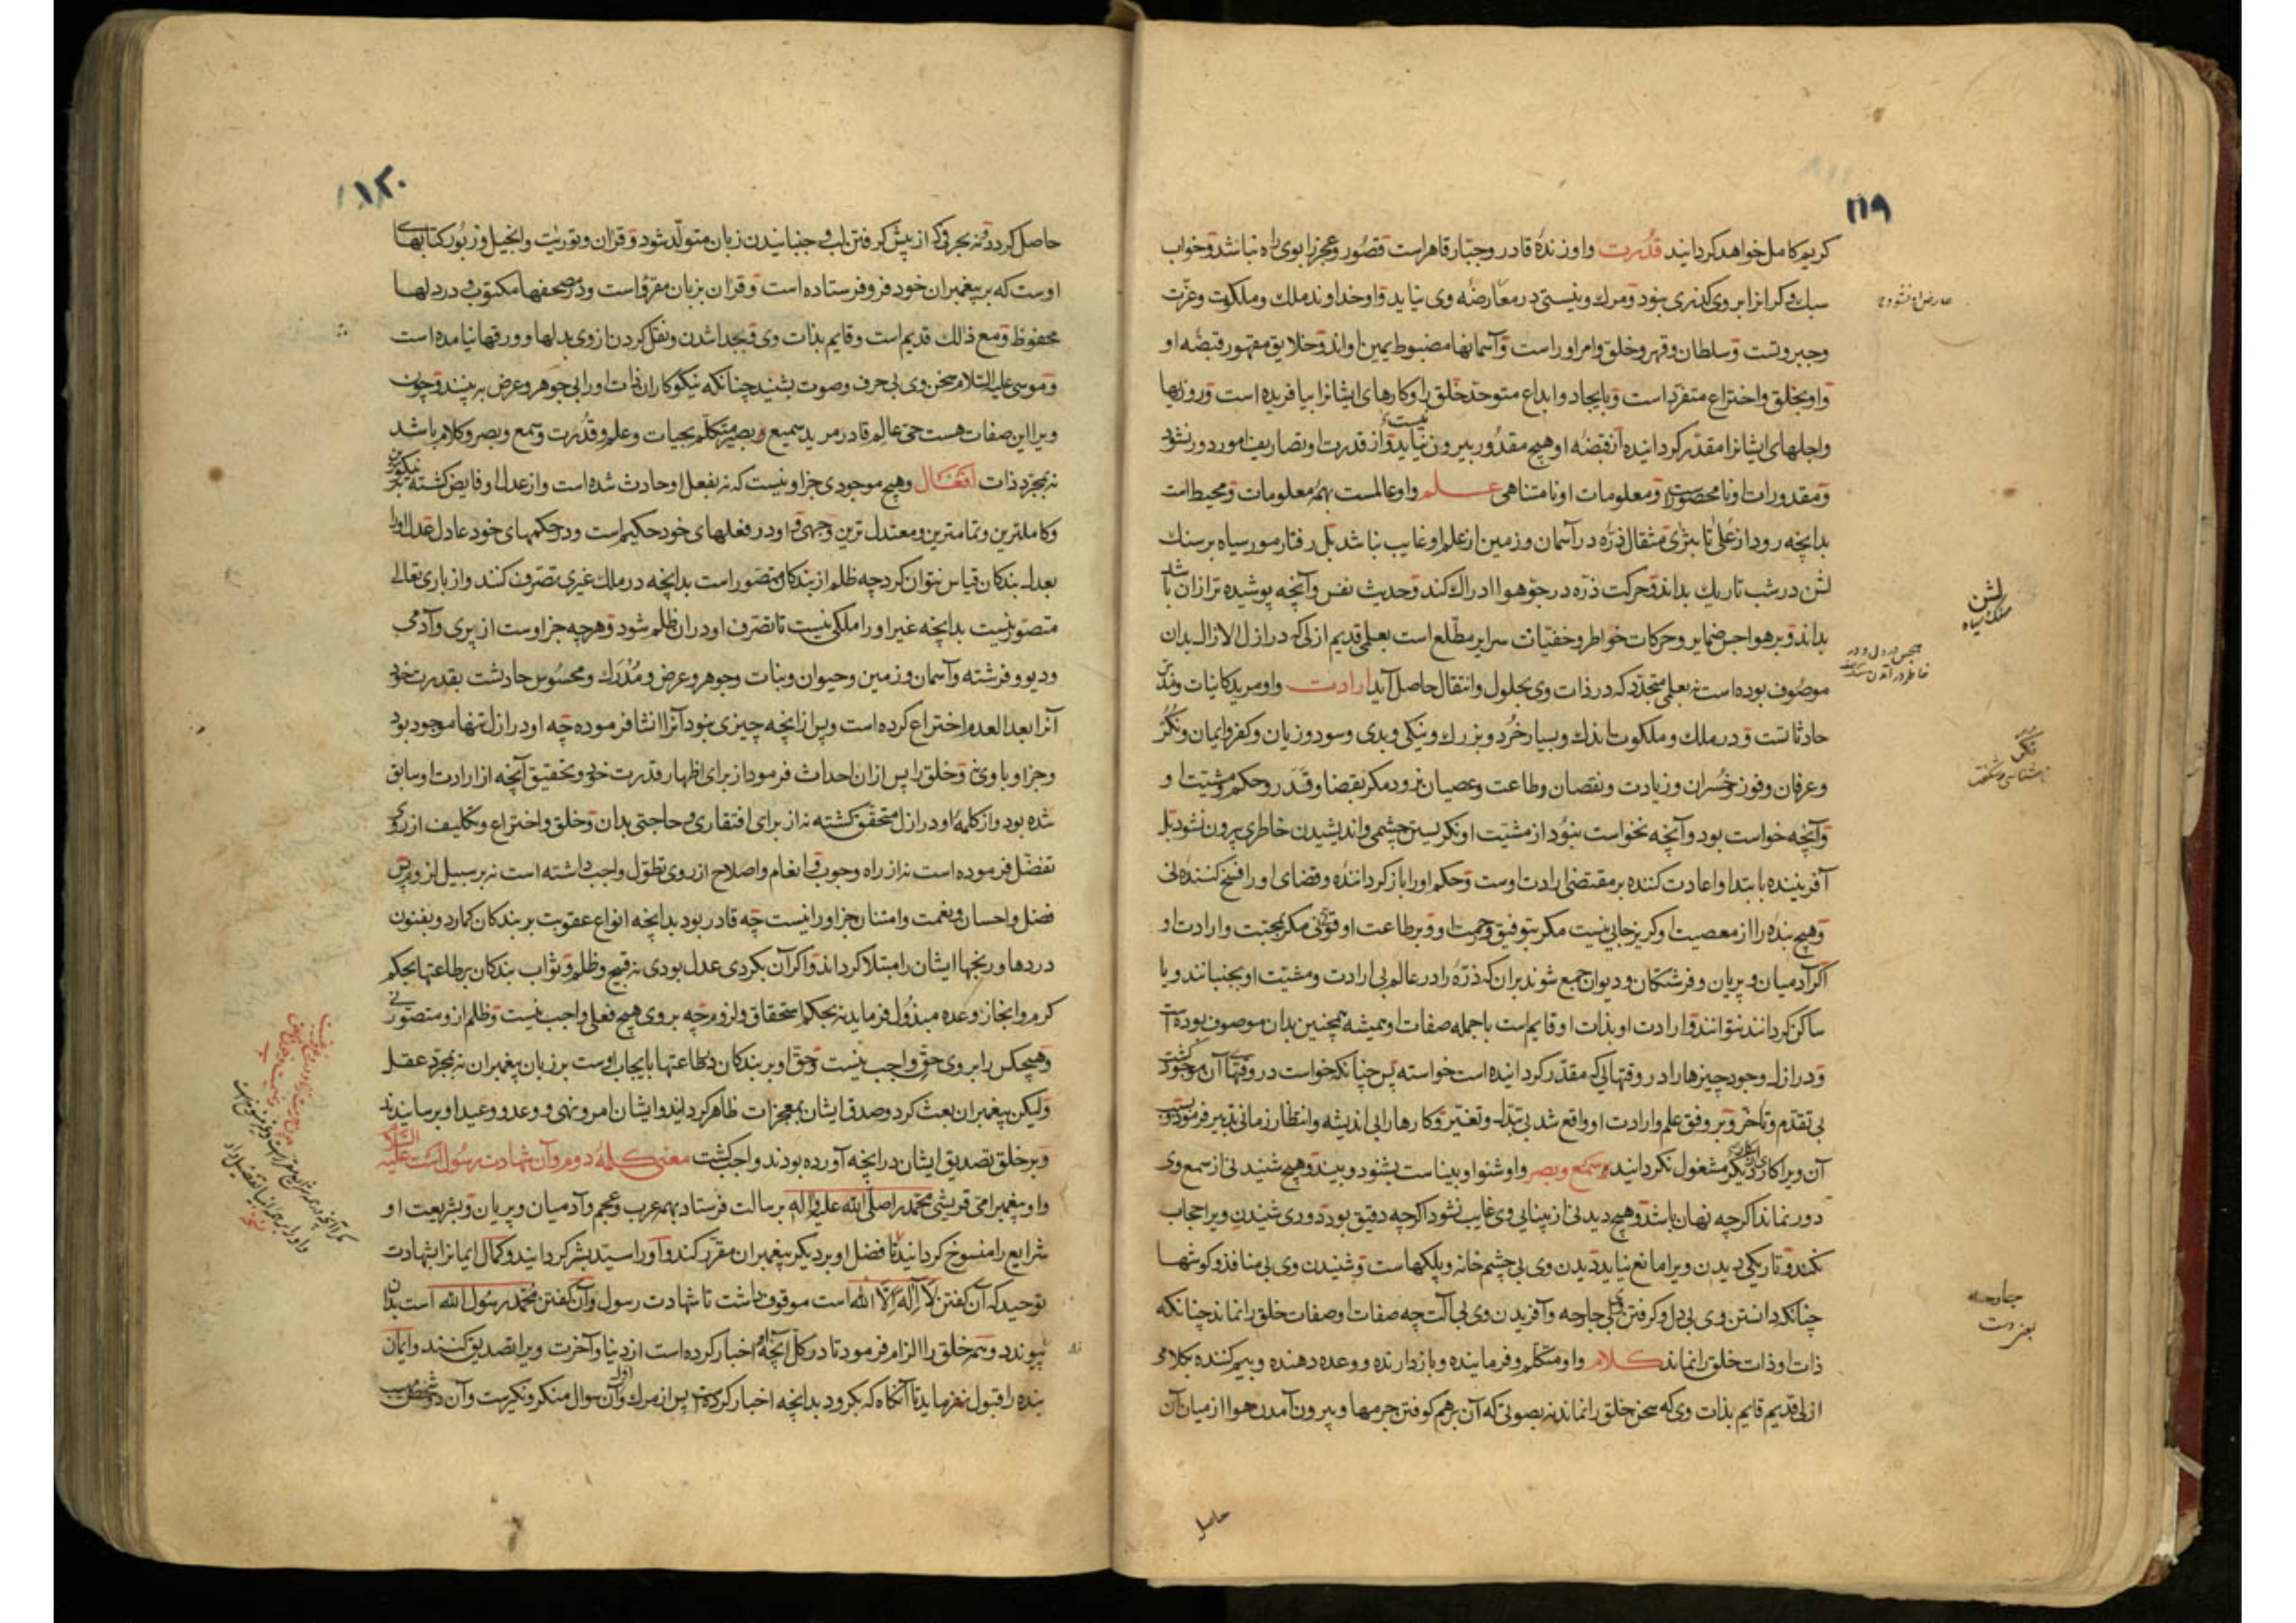 ۱۱۹
کریم کامل خواهد کردانید قدرت واو زندهٔ قادر وجبّار قاهر است قصور وعجز را بوی راه نباشد وخواب
سبك وکران را بر وی کذری نبود ومرك ونیستی در معارضهٔ وی نیاید واو خداوند ملك وملکوت وعزّت
وجبروتست وسلطان وقهر وخلق وامر اوراست وآسمانها مضبوط یمین او اند وخلایق مقهور قبضهٔ او
واو بخلق واختراع متفرّد است وبایجاد وابداع متوحّد خلق را وکارهای ایشانرا بیافریده است وروزیها
واجلهای ایشانرا مقدّر کردانیده از قبضهٔ او هیچ مقدور بیرون نیاید واز قدرت او تصاریف امور دور نشود
ومقدورات او نامحصور است ومعلومات او نامتناهی علم واو عالمست بهمه معلومات ومحیط است
بدانچه رود از علی تا بثری مثقال ذرّه در آسمان وزمین از علم او غایب نباشد بل رفتار مور سیاه بر سنك
لشن در شب تاریك بداند وحرکت ذرّه در جوّ هوا ادراك کند وحدیث نفس وآنچه پوشیده تر از ان باشد
بداند وبر هواجس ضمایر وحرکات خواطر وخفیّات سرایر مطّلع است بعلمی قدیم ازلی که در ازل الازال بدان
موصوف بوده است نه بعلمی متجدّد که در ذات وی بحلول وانتقال حاصل آید ارادت واو مرید کاینات ومدبّر
حادثاتست ودر ملك وملکوت اندك وبسیار خرد وبزرك ونیکی وبدی وسود وزیان وکفر وایمان ونکر
وعرفان وفوز وخسران وزیادت ونقصان وطاعت وعصیان نرود مکر بقضا وقدر وحکم ومشیّت او
وآنچه خواست بود وآنچه نخواست نبود از مشیّت او نکریستن چشمی واندیشیدن خاطری بیرون نشود بل
آفریننده بابتدا واعادت کننده بر مقتضی ارادت اوست وحکم اورا باز کرداننده وقضای اورا فسخ کننده نی
وهیچ بنده را از معصیت او کریزجایی نیست مکر بتوفیق ورحمت او وبر طاعت او قوّتی نی مکر بمحبّت وارادت او
اکر آدمیان وپریان وفرشتکان ودیوان جمع شوند بر ان که ذرّه را در عالم بی ارادت ومشیّت او بجنبانند ویا
ساکن کردانند نتوانند وارادت او بذات او قایم است با جمله صفات او همیشه همچنین بدان موصوف بوده است
ودر ازل وجود چیزها را در وقتهایی که مقدّر کردانیده است خواسته پس چنانکه خواست در وقتها آن موجود کشت
بی تقدّم وتأخّر وبر وفق علم وارادت او واقع شد بی تبدّل وتغیّر وکارها را بی اندیشه وانتظار زمانی تدبیر فرمود
آن ویرا کاری از کاری دیکر مشغول نکرداند سمع وبصر واو شنوا وبیناست بشنود وبیند وهیچ شنیدنی از سمع وی
دور نماند اکرچه نهان باشد وهیچ دیدنی از بینایی وی غایب نشود اکرچه دقیق بود دوری شنیدن ویرا حجاب
نکند وتاریکی دیدن ویرا مانع نیاید دیدن وی بی چشم خانه وپلکهاست وشنیدن وی بی منافذ وکوشها
چنانکه دانستن وی بی دل وکرفتن وی بی جارحه وآفریدن وی بی آلت چه صفات او صفات خلق را نماند چنانکه
ذات او ذات خلق را نماند کلام واو متکلّم وفرماینده وبازدارنده ووعده دهنده وبیم کننده بکلامی
ازلی قدیم قایم بذات وی که سخن خلق را نماند نه بصوتی که آن بر هم کوفتن جرمها وبیرون آمدن هوا از میان آن
حاصل
لشن
سنك سیاه
نکر
جارحه
یعنی دست
۱۲۰
حاصل کردد ونه بحرفی که از پیش کرفتن لب وجنبانیدن زبان متولّد شود وقران وتوریت وانجیل وزبور کتابهای
اوست که بر پیغمبران خود فرو فرستاده است وقران بزبان مقروّ است ودر مصحفها مکتوب ودر دلها
محفوظ ومع ذلك قدیم است وقایم بذات وی وبجدا شدن ونقل کردن از وی بدلها وورقها نیامده است
وموسی علیه السّلام سخن وی بی حرف وصوت بشنید چنانکه نیکوکاران ذات اورا بی جوهر وعرض به بینند وچون
ویرا این صفات هست حیّ عالم قادر مرید سمیع وبصیر متکلّم بحیات وعلم وقدرت وسمع وبصر وکلام باشد
نه بمجرّد ذات افعال وهیچ موجودی جز او نیست که نه بفعل او حادث شده است واز عدل او فایض کشته بر نیکوترین
وکاملترین وتمامترین ومعتدل ترین وجهی واو در فعلهای خود حکیم است ودر حکمهای خود عادل عدل اورا
بعدل بندکان قیاس نتوان کرد چه ظلم از بندکان متصوّر است بدانچه در ملك غیری تصرّف کنند واز باری تعالی
متصوّر نیست بدانچه غیر اورا ملکی نیست تا تصرّف او در ان ظلم شود وهرچه جز اوست از پری وآدمی
ودیو وفرشته وآسمان وزمین وحیوان ونبات وجوهر وعرض ومدرك ومحسوس حادثست بقدرت خود
آنرا بعد العدم اختراع کرده است وپس از آنچه چیزی نبود آنرا انشا فرموده چه او در ازل تنها موجود بود
وجز او با وی نی وخلق را پس از ان احداث فرمود از برای اظهار قدرت خود وتحقیق آنچه از ارادت او سابق
شده بود واز کلمهٔ او در ازل متحقّق کشته نه از برای افتقاری وحاجتی بدان وخلق واختراع وتکلیف از روی
تفضّل فرموده است نه از راه وجوب وانعام واصلاح از روی تطوّل واجب داشته است نه بر سبیل لزوم پس
فضل واحسان ونعمت وامتنان جز اورا نیست چه قادر بود بدانچه انواع عقوبت بر بندکان کمارد وبفنون
دردها ورنجها ایشان را مبتلا کرداند واکر آن بکردی عدل بودی نه قبیح وظلم وثواب بندکان بر طاعتها بحکم
کرم وانجاز وعده مبذول فرماید نه بحکم استحقاق ولزوم چه بر وی هیچ فعلی واجب نیست وظلم از و متصوّر نی
وهیچکس را بر وی حقّی واجب نیست وحقّ او بر بندکان در طاعتها بایجاب اوست بر زبان پیغمبران نه بمجرّد عقل
ولیکن پیغمبران بعث کرد وصدق ایشان بمعجزات ظاهر کردانید وایشان امر ونهی ووعد ووعید او برسانیدند
وبر خلق تصدیق ایشان در آنچه آورده بودند واجب کشت معنی کلمهٔ دوم وآن شهادت رسول است علیه السّلام
واو پیغمبر امّی قریشی محمّد را صلّی الله علیه وآله برسالت فرستاد بهمه عرب وعجم وآدمیان وپریان وبشریعت او
شرایع را منسوخ کردانید تا فضل او بر دیکر پیغمبران مقرّر کند واورا سیّد بشر کردانید وکمال ایمان را بشهادت
توحید که آن کفتن لا اله الّا الله است موقوف داشت تا شهادت رسول وآن کفتن محمّد رسول الله است بدان
پیوندد وهمه خلق را الزام فرمود تا در کلّ آنچه او اخبار کرده است از دنیا وآخرت ویرا تصدیق کنند وایمان
بنده را قبول نفرماید تا آنکاه که بکرود بدانچه اخبار کرده است پس از مرك اول وآن سوال منکر ونکیرست وآن دو شخص مهیب